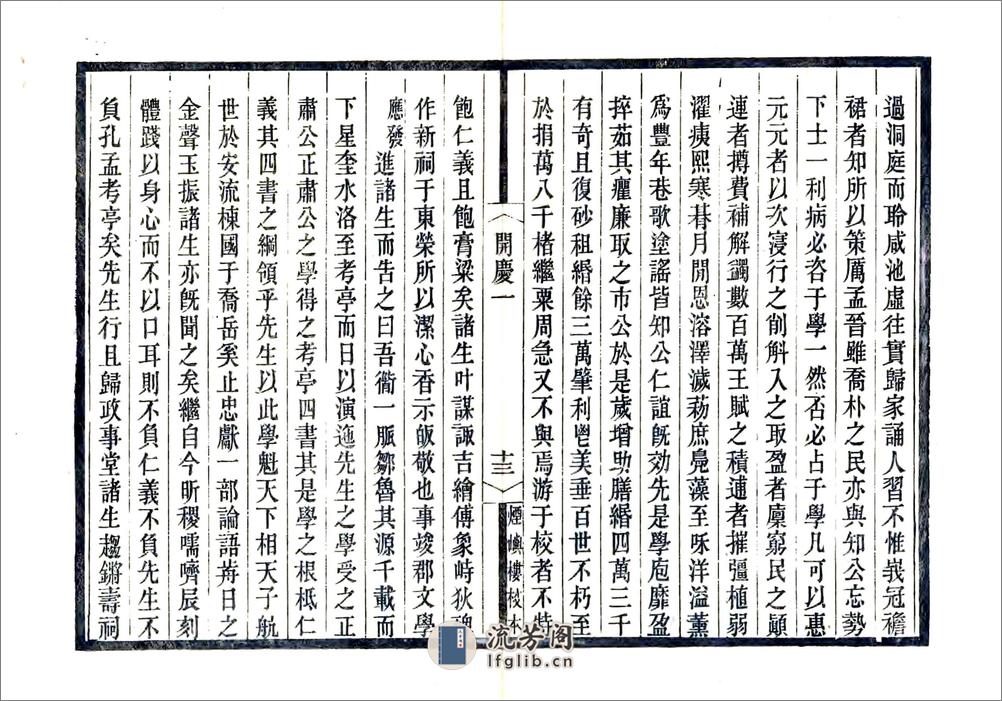 過洞庭而聆咸池虛往實歸家誦人習不惟峩冠襜
裾者知所以策厲孟晉雖喬朴之民亦與知公忘勢
下士一利病必咨于學一然否必占于學凡可以惠
元元者以次寖行之削斛入之取盈者廩窮民之顚
連者撙費補解蠲數百萬王賦之積逋者摧彊植弱
濯痍熙寒朞月閒恩溶澤濊莇庶鳧藻至呹洋溢薰
爲豐年巷歌塗謠皆知公仁誼旣効先是學庖靡盈
捽茹其癯廉取之市公於是歲增助膳緡四萬三千
有奇且復砂租緡餘三萬肇利鬯美垂百世不朽至
於捐萬八千楮繼粟周急又不與焉游于校者不特
開慶一
十三
煙嶼樓校本
飽仁義且飽膏粱矣諸生叶謀諏吉繪傅象峙狄碑
作新祠于東榮所以潔心香示皈敬也事竣郡文學
應發進諸生而告之曰吾衢一脈鄒魯其源千載而
下星奎水洛至考亭而日以演迤先生之學受之正
肅公正肅公之學得之考亭四書其是學之根柢仁
義其四書之綱領乎先生以此學魁天下相天子航
世於安流棟國于喬岳奚止忠獻一部論語荐日之
金聲玉振諸生亦旣聞之矣繼自今昕稷嚅嚌辰刻
體踐以身心而不以口耳則不負仁義不負先生不
負孔孟考亭矣先生行且歸政事堂諸生趨鏘壽祠
流芳阁
lfglib.cn